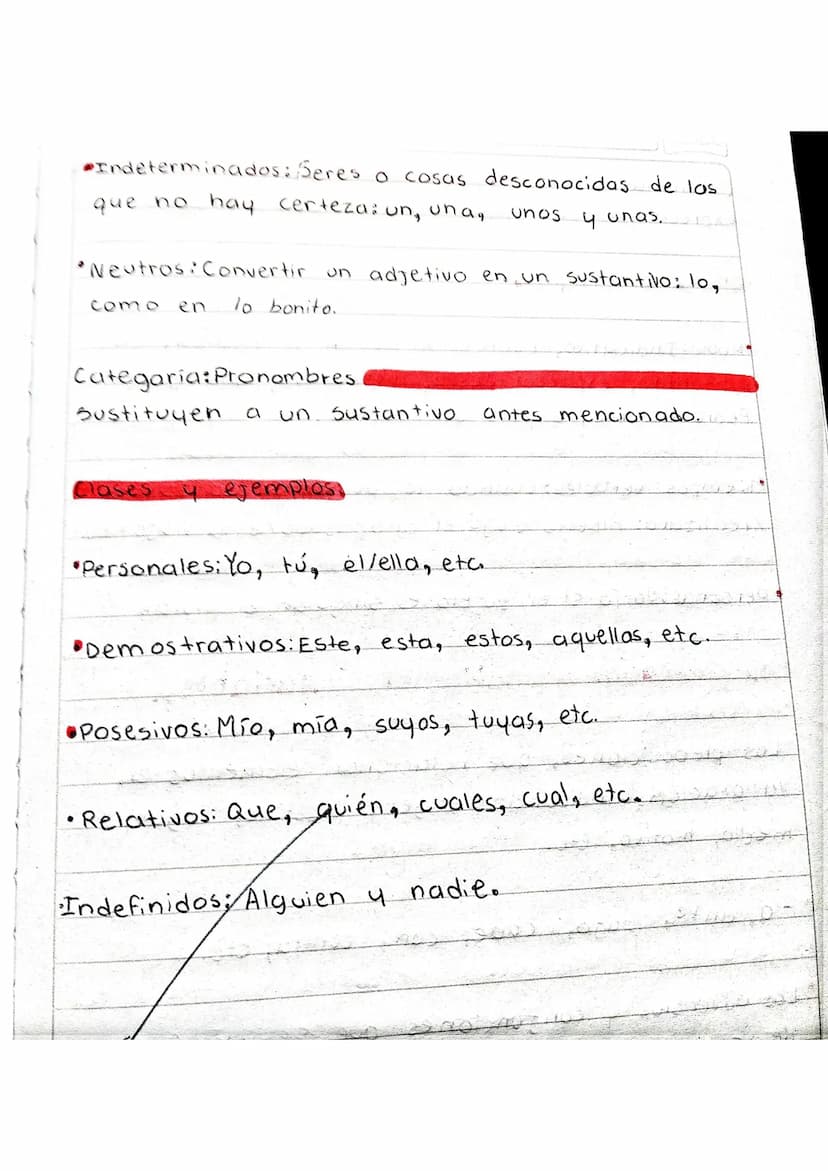 •Indeterminados: Seres o cosas desconocidas de los
que no hay certeza: un, una, unos y unas.
•Neutros: Convertir un adjetivo en un sustantivo: lo,
como en lo bonito.
Categoría: Pronombres
Sustituyen a un sustantivo antes mencionado.
Clases y ejemplos
•Personales: Yo, tú, él/ella, etc.
•Demostrativos: Este, esta, estos, aquellas, etc.
•Posesivos: Mío, mía, suyos, tuyas, etc.
•Relativos: Que, quién, cuales, cual, etc.
•Indefinidos: Alguien y nadie.